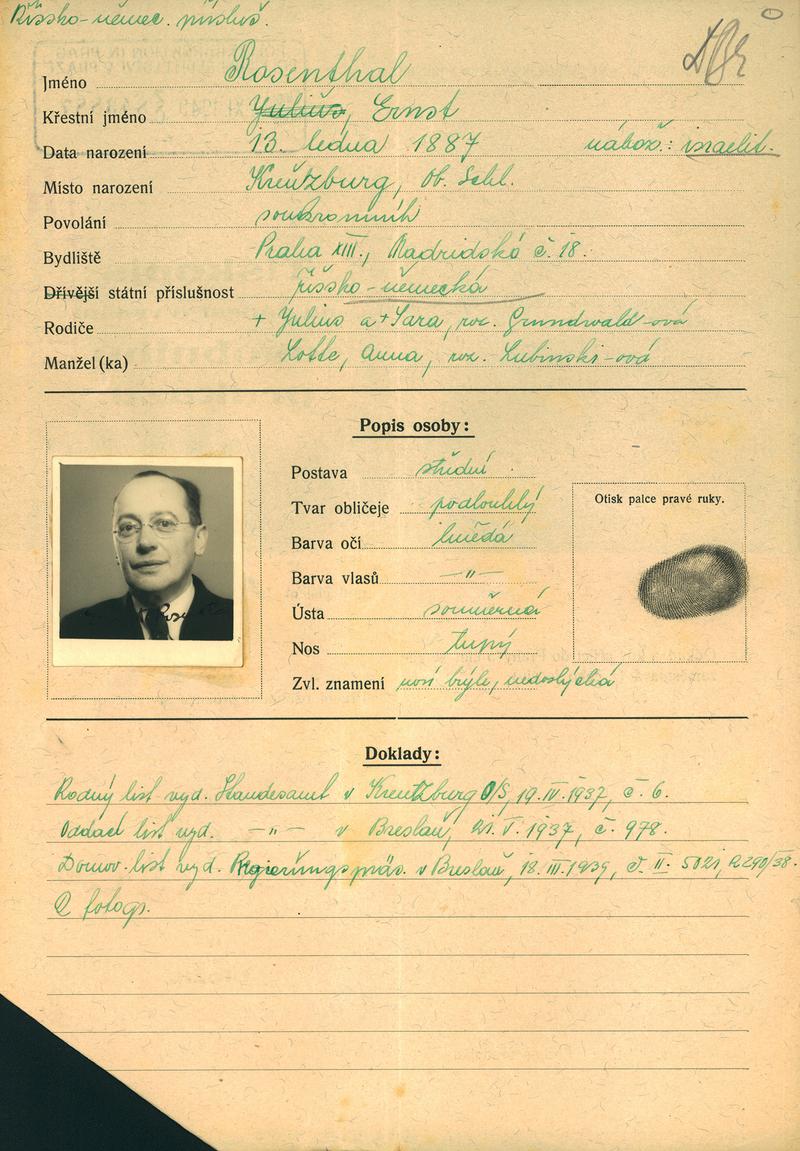 Říšsko-němec. přísluš.
Jméno Rosenthal
Křestní jméno Julius, Ernst
Data narození 13. ledna 1887 nábož.: israelit.
Místo narození Kreutzburg, Ob. Schl.
Povolání soukromník
Bydliště Praha XIII., Madridská č. 18.
Dřívější státní příslušnost říšsko-německá
Rodiče + Julius a + Sara, roz. Grundwald-ová
Manžel(ka) Lotte, Anna, roz. Lubinski-ová
Popis osoby:
Postava střední
Tvar obličeje podlouhlý
Barva očí hnědá
Barva vlasů —"—
Ústa souměrná
Nos tupý
Zvl. znamení nosí brýle, nedoslýchá
Otisk palce pravé ruky.
Doklady:
Rodný list vyd. Standesamt v Kreutzburg O/S, 19.IV.1937, č. 6.
Oddací list vyd. —"— v Breslau, 21.V.1937, č. 978.
Domov. list vyd. Regierungspräs. v Breslau, 18.III.1939, č. II. 5021, R 290/38.
2 fotogr.